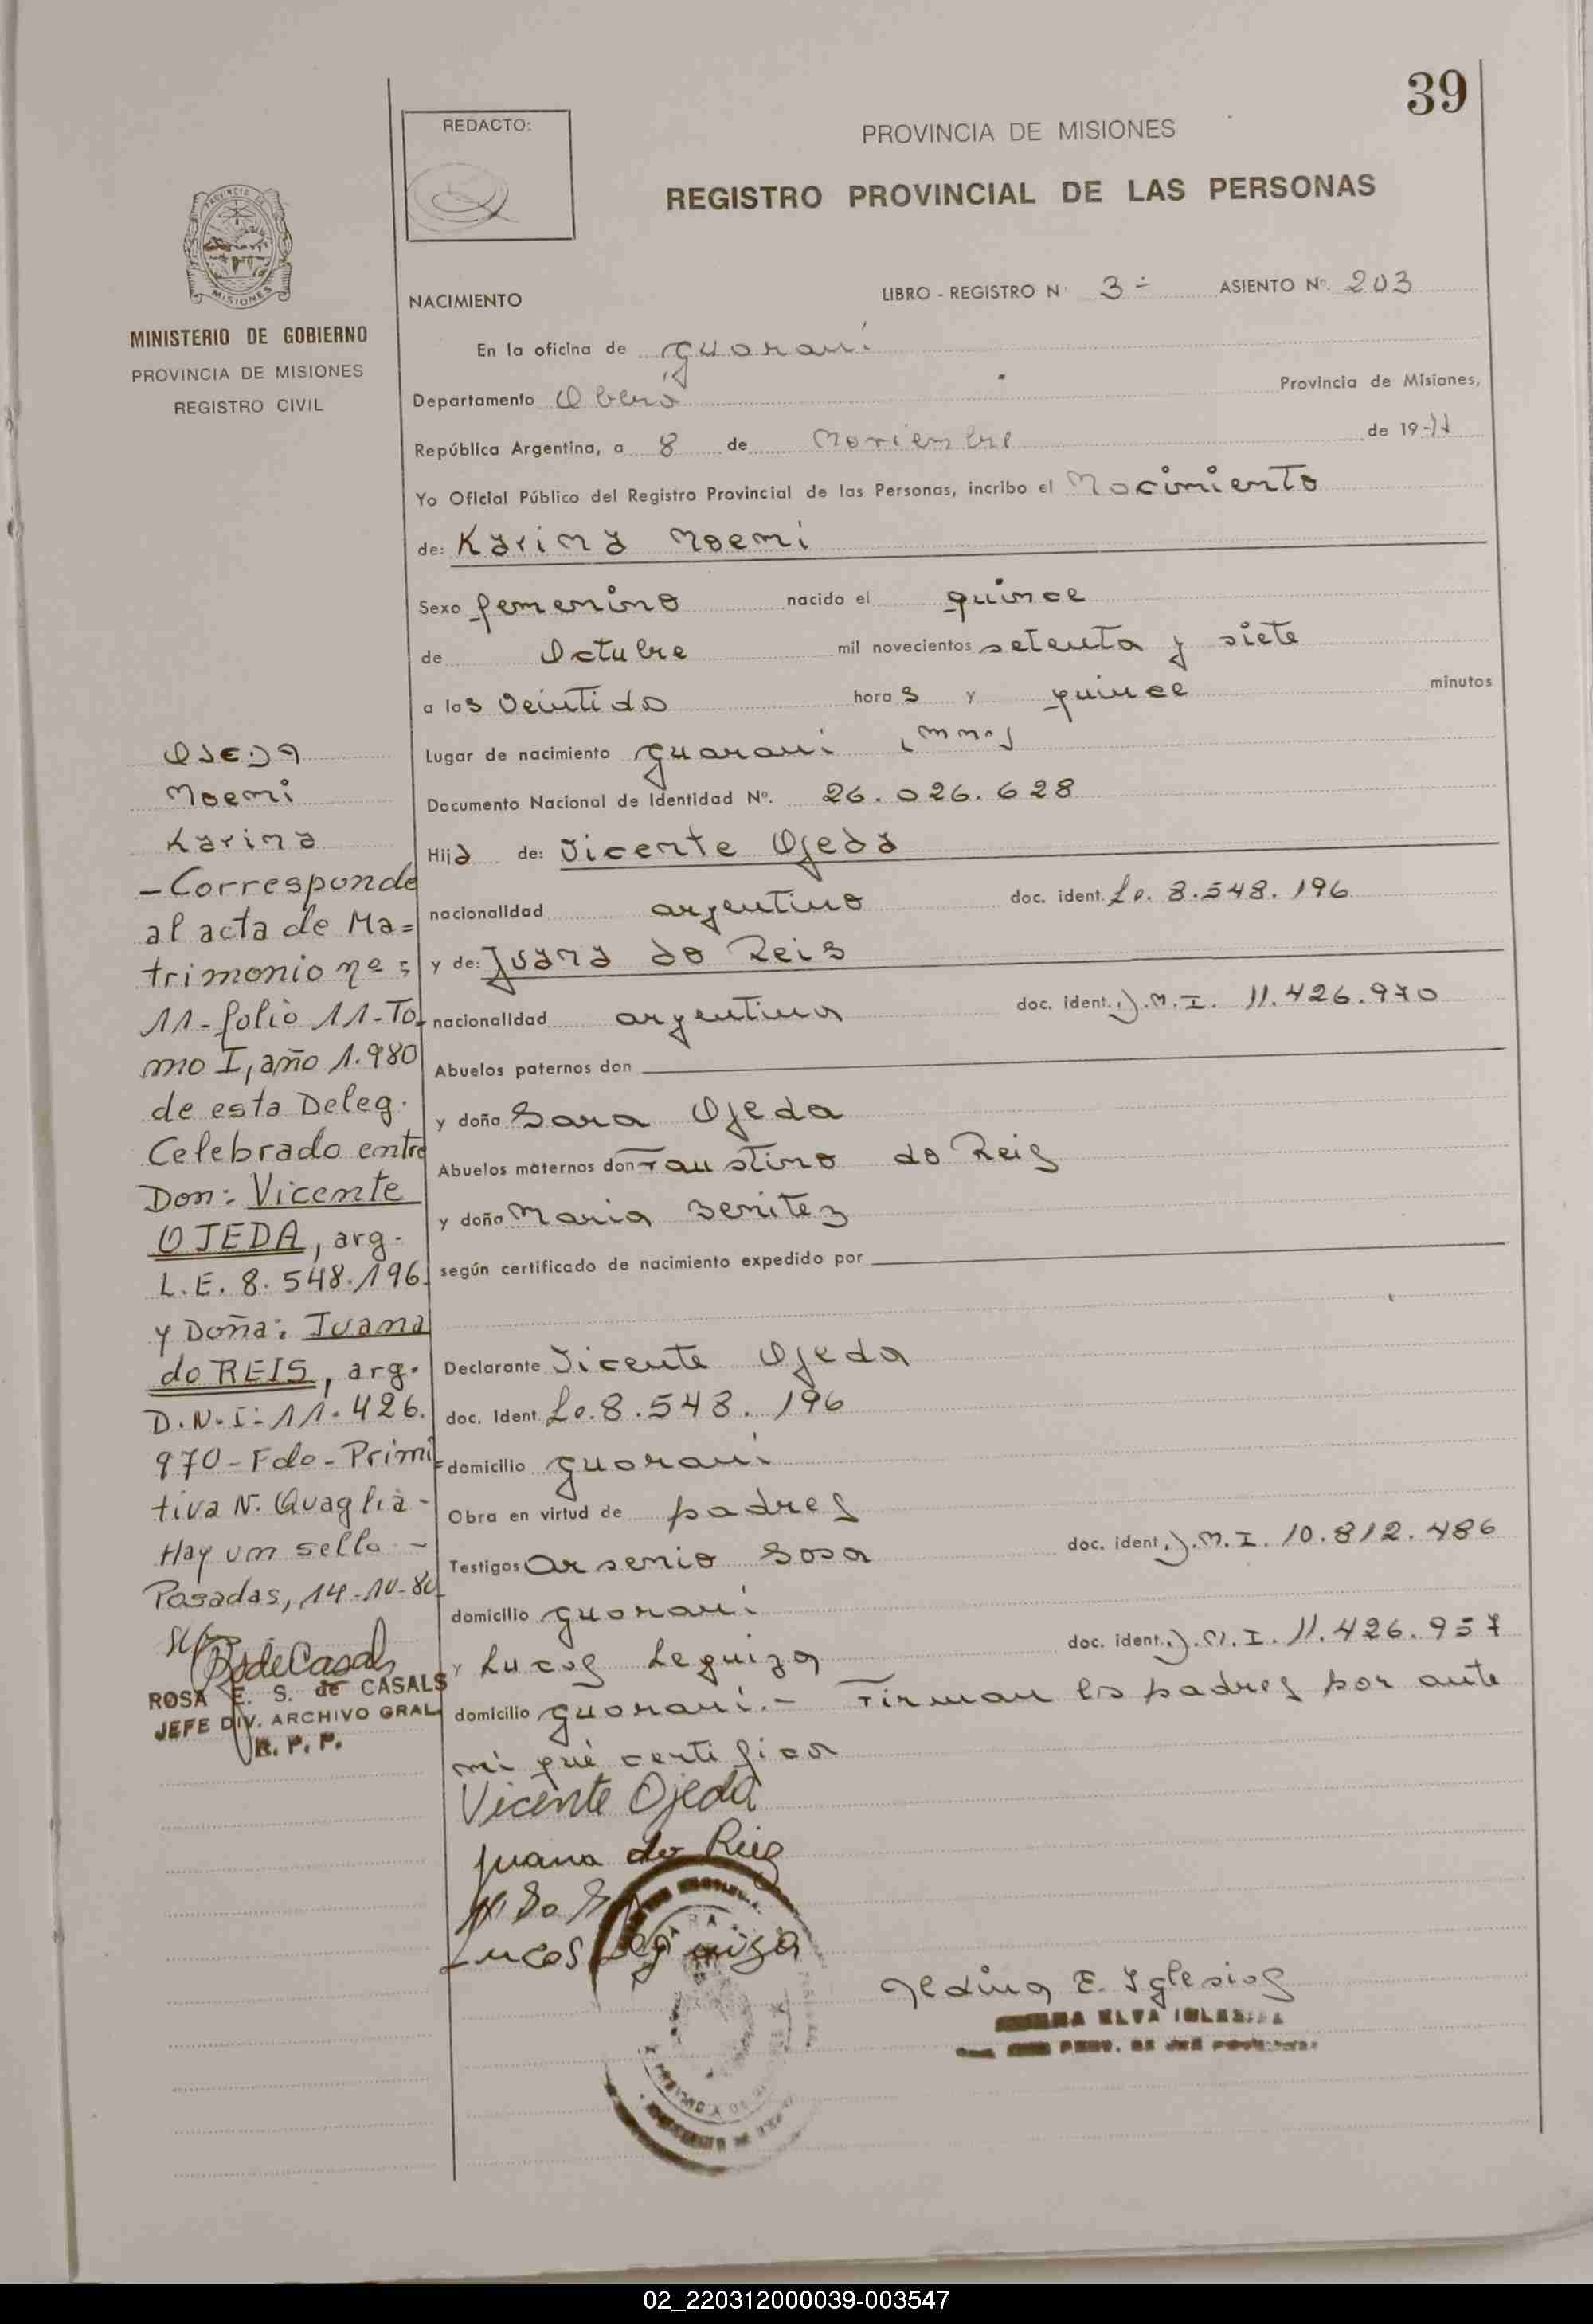 39
REDACTO:
PROVINCIA DE MISIONES
REGISTRO PROVINCIAL DE LAS PERSONAS
MISIONES
MINISTERIO DE GOBIERNO
PROVINCIA DE MISIONES
REGISTRO CIVIL
NACIMIENTO
LIBRO - REGISTRO N° 3- ASIENTO Nº. 203
En la oficina de Guaraní
Departamento Oberá Provincia de Misiones,
República Argentina, a 8 de Noviembre de 19 77
Yo Oficial Público del Registro Provincial de las Personas, incribo el Nacimiento
de: Karina Noemi
Sexo femenino nacido el quince
de Octubre mil novecientos setenta y siete
a las veintido horas y quince minutos
Lugar de nacimiento Guaraní (Mnes)
Documento Nacional de Identidad Nº. 26.026.628
Hija de: Vicente Ojeda
nacionalidad argentino doc. ident. Le. 8.548.196
y de: Juana do Reis
nacionalidad argentina doc. ident. D.N.I. 11.426.970
Abuelos paternos don
y doña Sara Ojeda
Abuelos maternos don Faustino do Reis
y doña Maria Benitez
según certificado de nacimiento expedido por
Declarante Vicente Ojeda
doc. Ident Le. 8.548.196
domicilio Guaraní
Obra en virtud de padres
Testigos Arsenio Sosa doc. ident D.N.I. 10.812.486
domicilio Guaraní
y Lucas Leguiza doc. ident. D.N.I. 11.426.957
domicilio Guaraní.- Firman los padres por ante
mí qué certifica
Vicente Ojeda
Juana do Reis
Lucas Leguiza
OJEDA
Noemi
Karina
- Corresponde
al acta de Ma=
trimonio nº:
11-folio 11-To-
mo I, año 1.980
de esta Deleg.
Celebrado entre
Don: Vicente
OJEDA, arg.
L.E. 8.548.196
y Doña: Juana
do REIS, arg.
D.N.I: 11.426.
970-Fdo-Primi=
tiva N. Quaglia-
Hay un sello -
Posadas, 14-10-80
RSdeCasals
ROSA E. S. de CASALS
JEFE DIV. ARCHIVO GRAL
R. P. P.
E. Iglesias
ELVA IGLESIAS
02_220312000039-003547